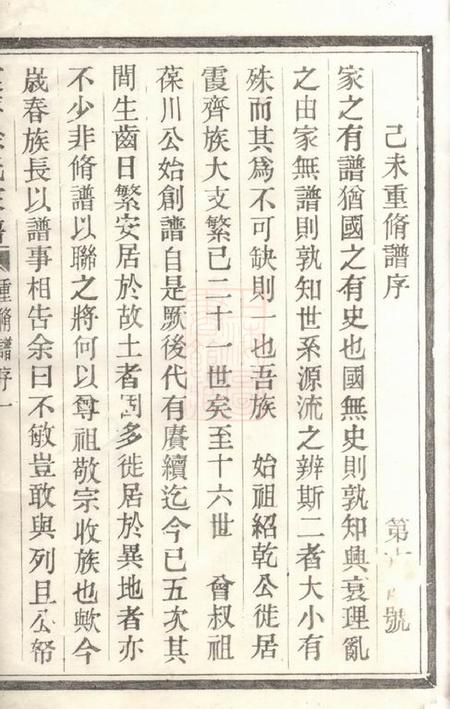 己未重脩譜序
第 號
家之有譜猶國之有史也國無史則孰知興衰理亂
之由家無譜則孰知世系源流之辨斯二者大小有
殊而其爲不可缺則一也吾族 始祖紹乾公徙居
霞齊族大支繁已二十一世矣至十六世 曾叔祖
葆川公始創譜自是厥後代有賡續迄今已五次其
間生齒日繁安居於故土者固多徙居於異地者亦
不少非脩譜以聯之將何以尊祖敬宗收族也歟今
歲春族長以譜事相告余曰不敏豈敢與列且公帑
重脩譜序 一